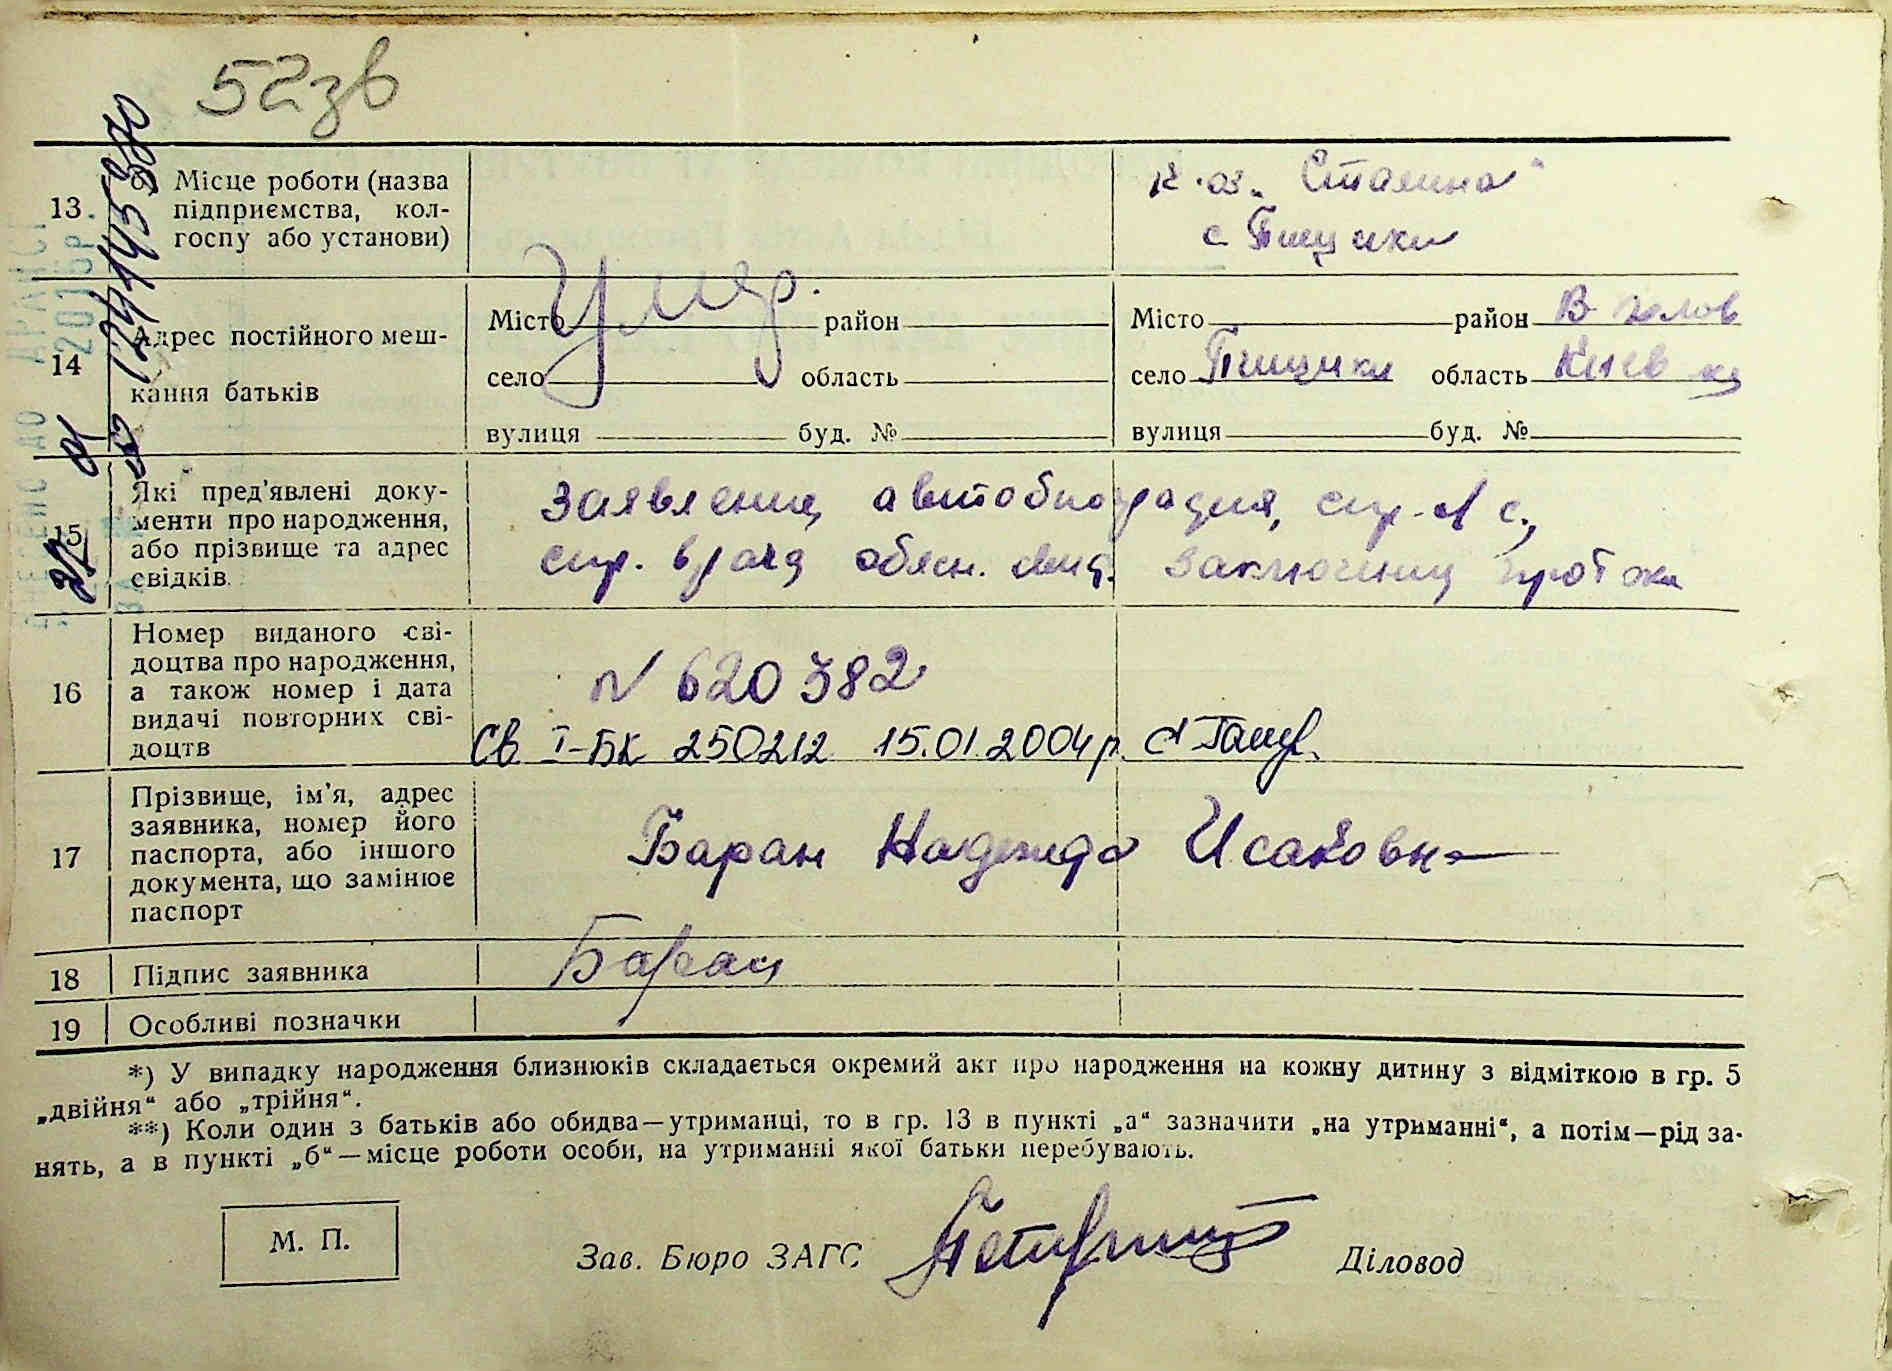 52зв
13. б) Місце роботи (назва підприємства, кол-
госпу або установи)
к-оз. „Сталина"
с. Пищики
14 Адрес постійного меш-
кання батьків
Умер.
Місто район
село область
вулиця буд. №
Місто район
село Пищики область Киев
вулиця буд. №
15 Які пред'явлені доку-
менти про народження,
або прізвище та адрес
свідків.
заявление, автобиография,
спр. врача заключение
16 Номер виданого сві-
доцтва про народження,
а також номер і дата
видачі повторних сві-
доцтв
N 620382
Св I-БК 250212 15.01.2004р.
17 Прізвище, ім'я, адрес
заявника, номер його
паспорта, або іншого
документа, що замінює
паспорт
Баран Надежда Исаковна
18 Підпис заявника
Баран
19 Особливі позначки
*) У випадку народження близнюків складається окремий акт про народження на кожну дитину з відміткою в гр. 5
„двійня" або „трійня".
**) Коли один з батьків або обидва—утриманці, то в гр. 13 в пункті „а" зазначити „на утриманні", а потім—рід за-
нять, а в пункті „б"—місце роботи особи, на утриманні якої батьки перебувають.
М. П.
Зав. Бюро ЗАГС
Діловод